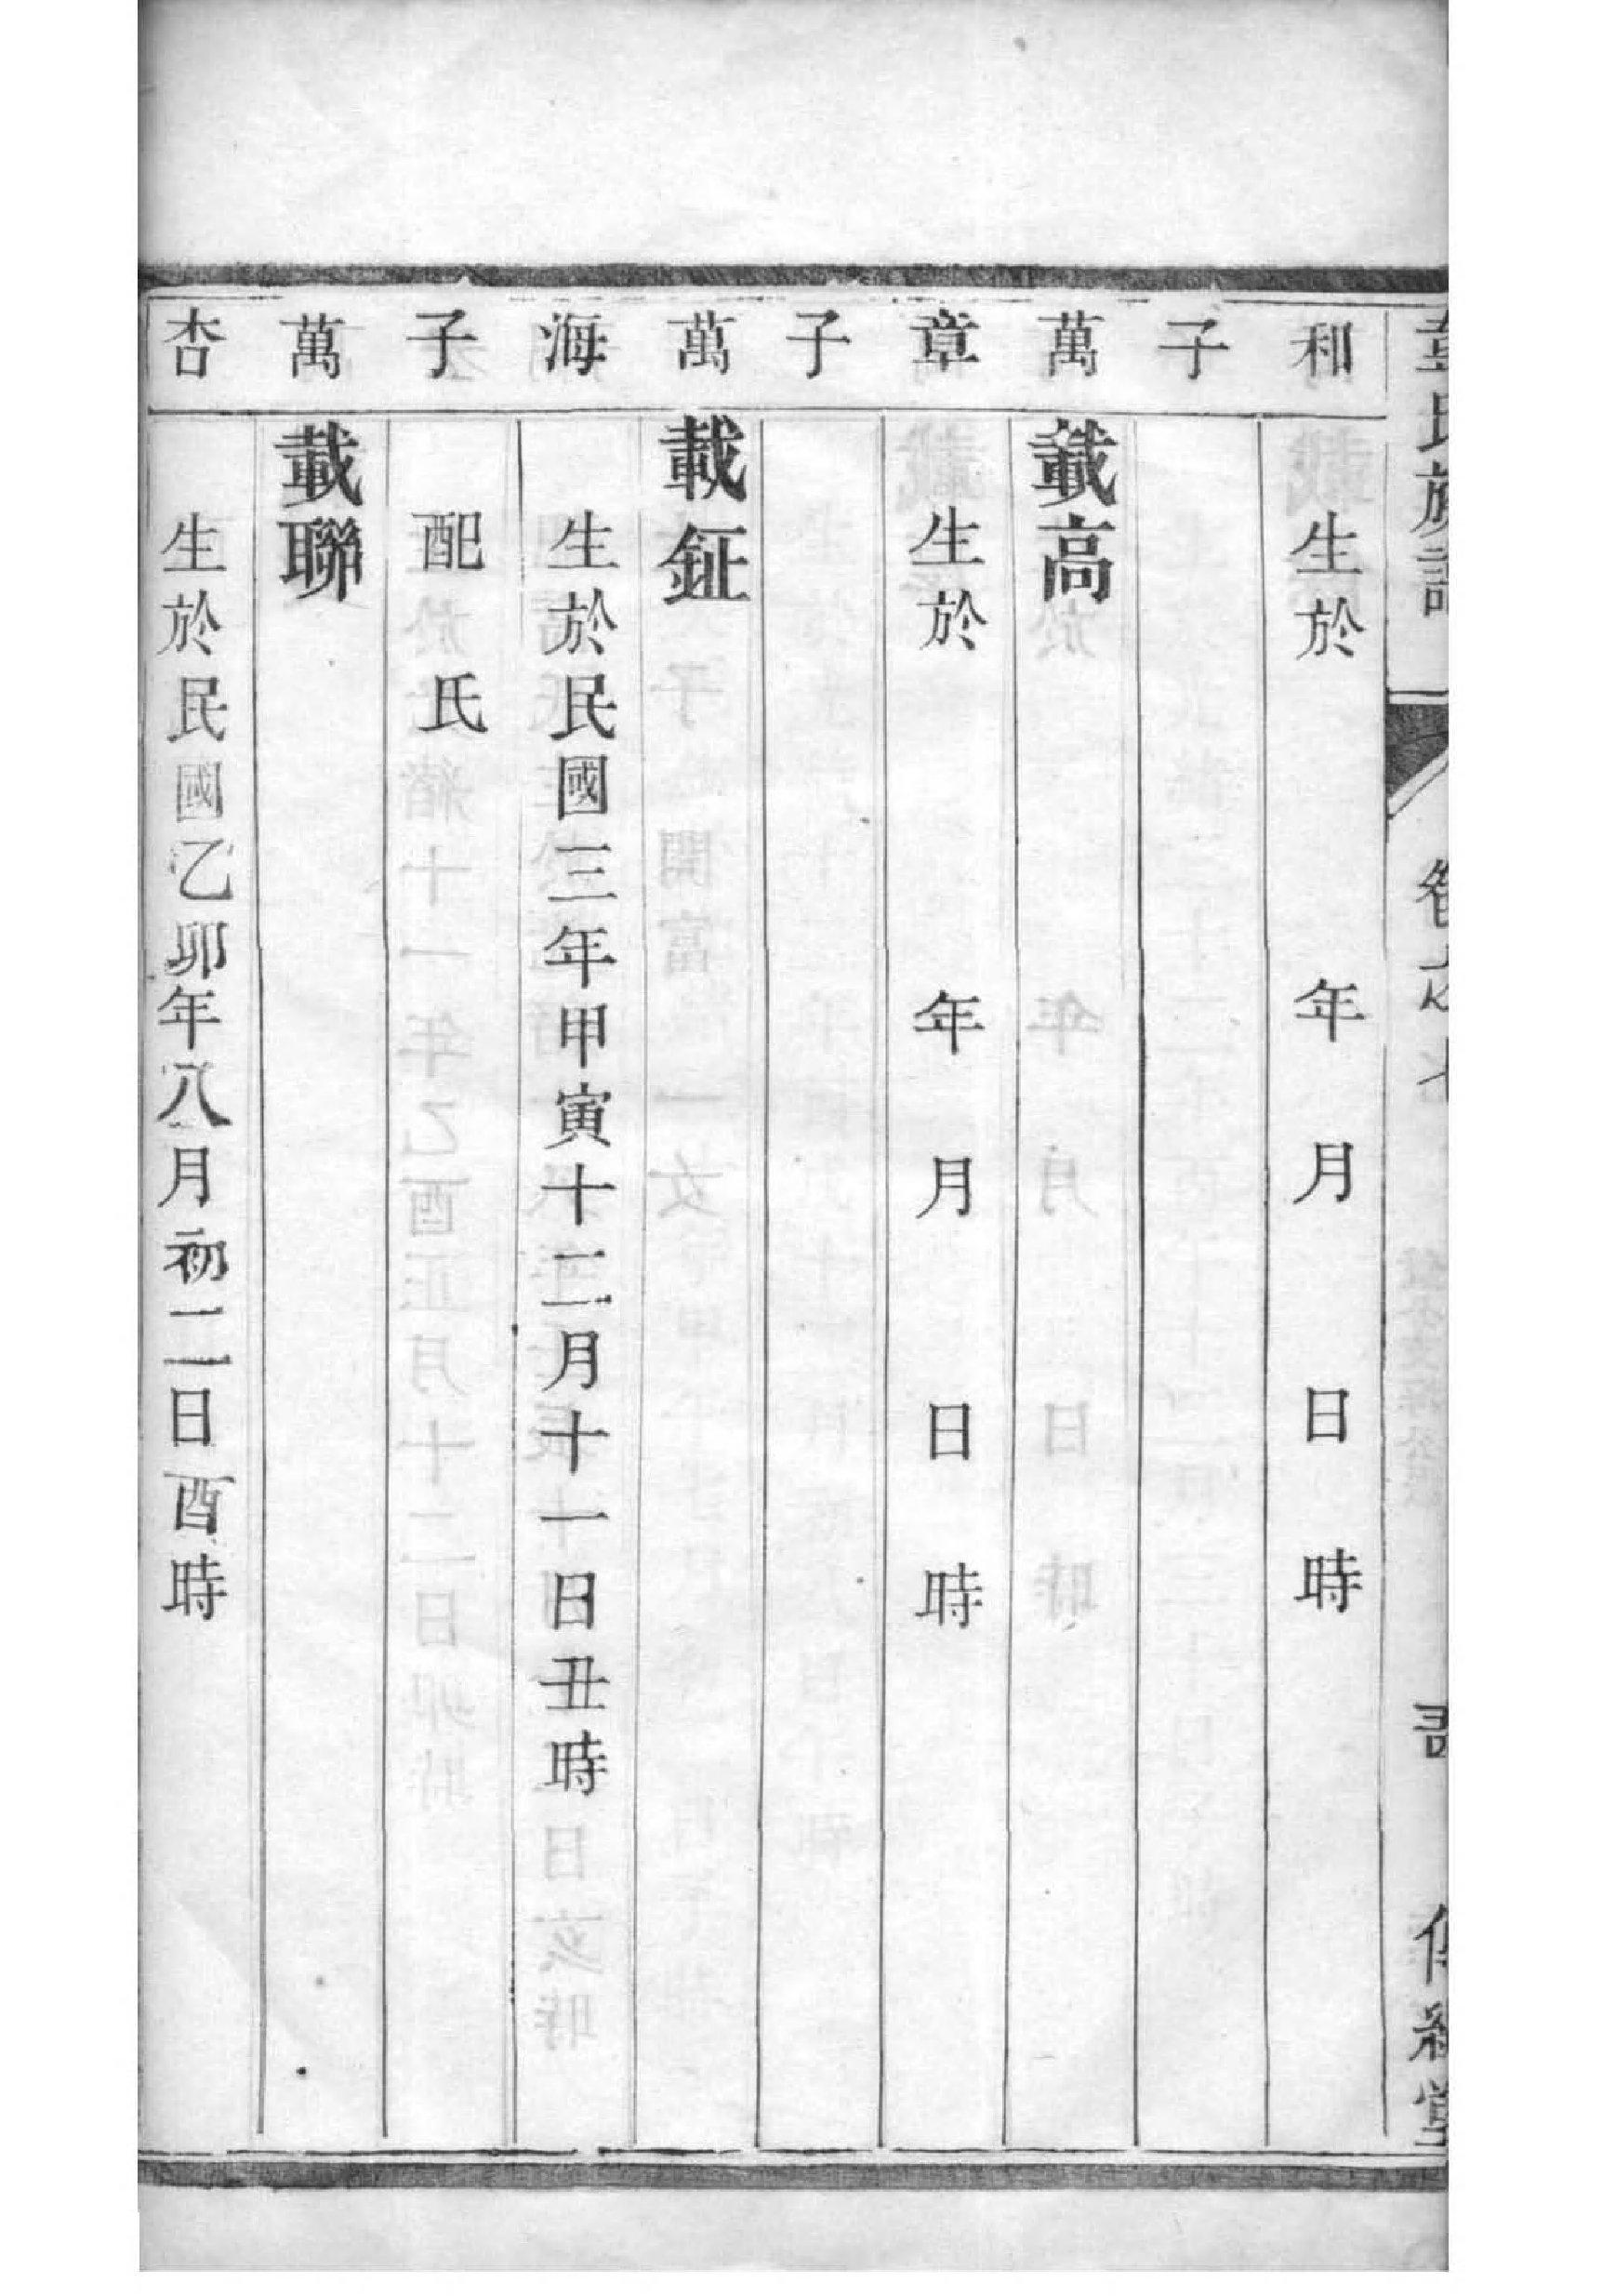 氏族譜 卷之七 堂
和 生於 年 月 日 時
子
萬 載高
章 生於 年 月 日 時
子
萬 載鉦
海 生於民國三年甲寅十二月十一日丑時
子 配 氏
萬 載聯
杏 生於民國乙卯年八月初二日酉時